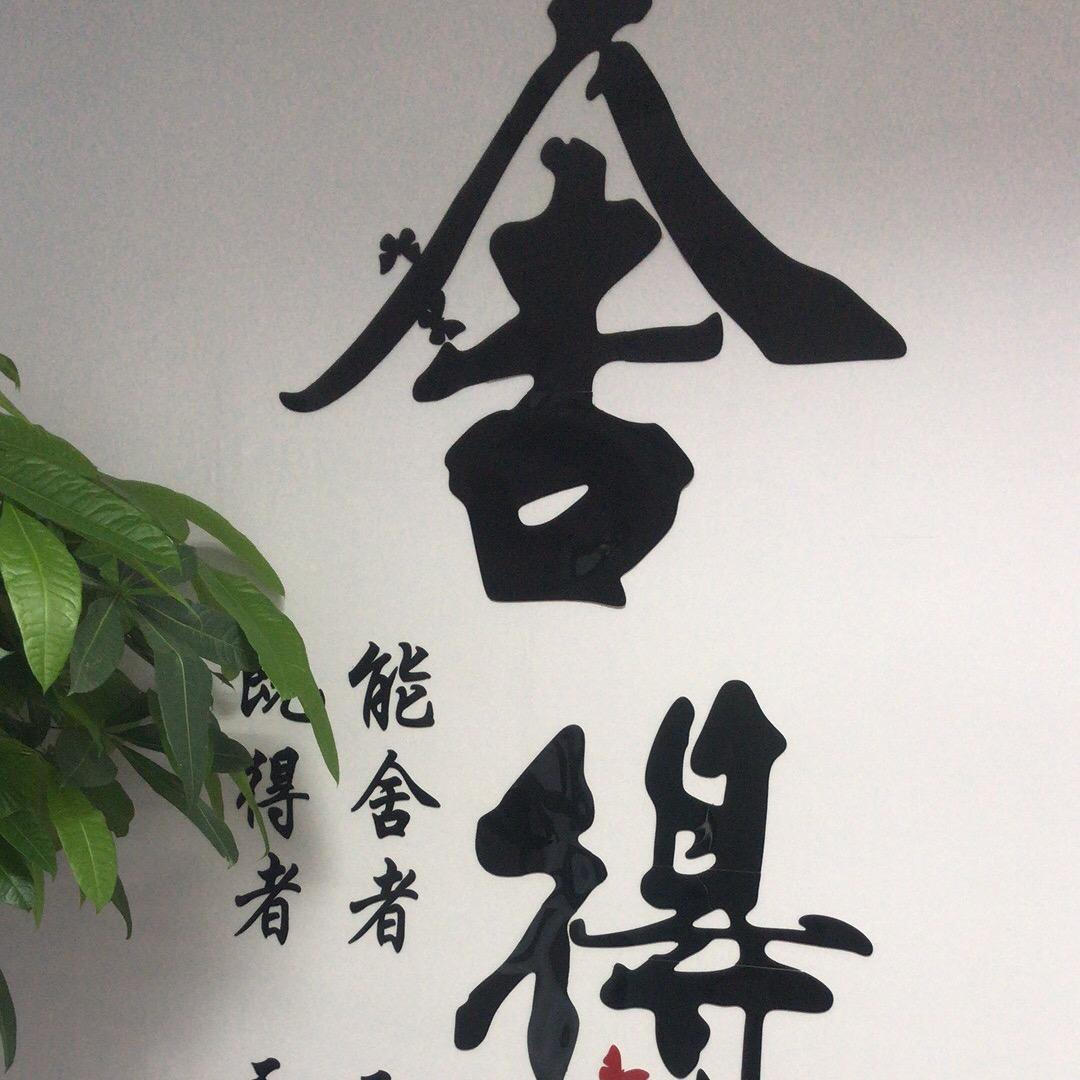 舍得
能舍者
既得者